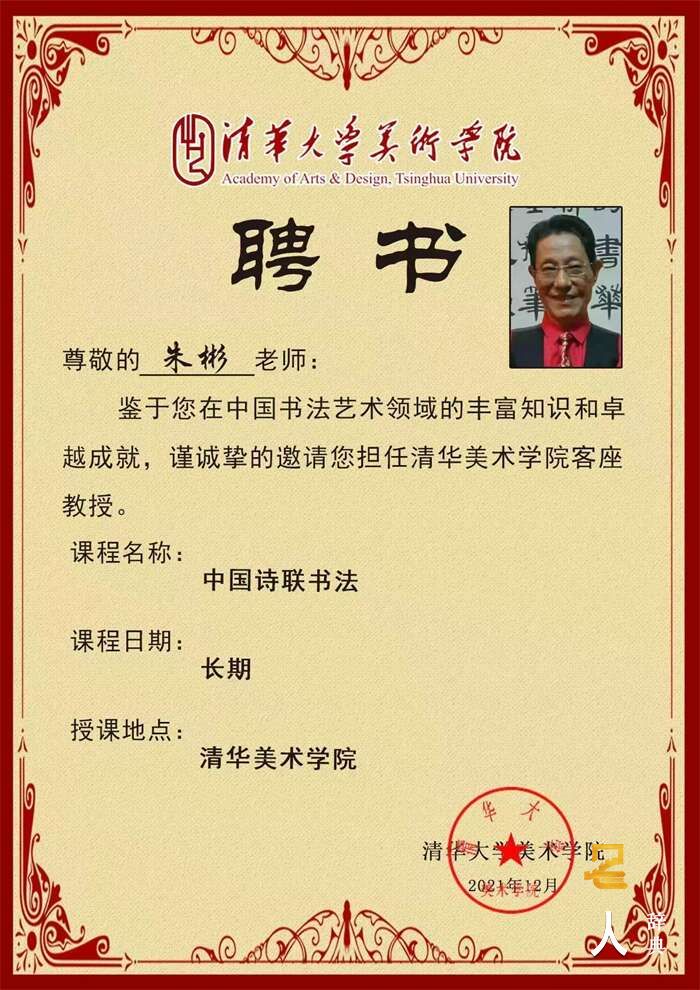 清华大学美術学院
Academy of Arts & Design, Tsinghua University
聘书
尊敬的 朱彬 老师：
鉴于您在中国书法艺术领域的丰富知识和卓
越成就，谨诚挚的邀请您担任清华美术学院客座
教授。
课程名称：
中国诗联书法
课程日期：
长期
授课地点：
清华美术学院
清华大学
清华大学美术学院
2021年12月
美术学院
名
人
辞典